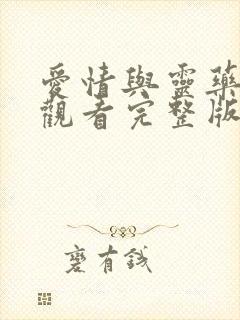 愛情與靈藥
觀看完整版
褒有錢